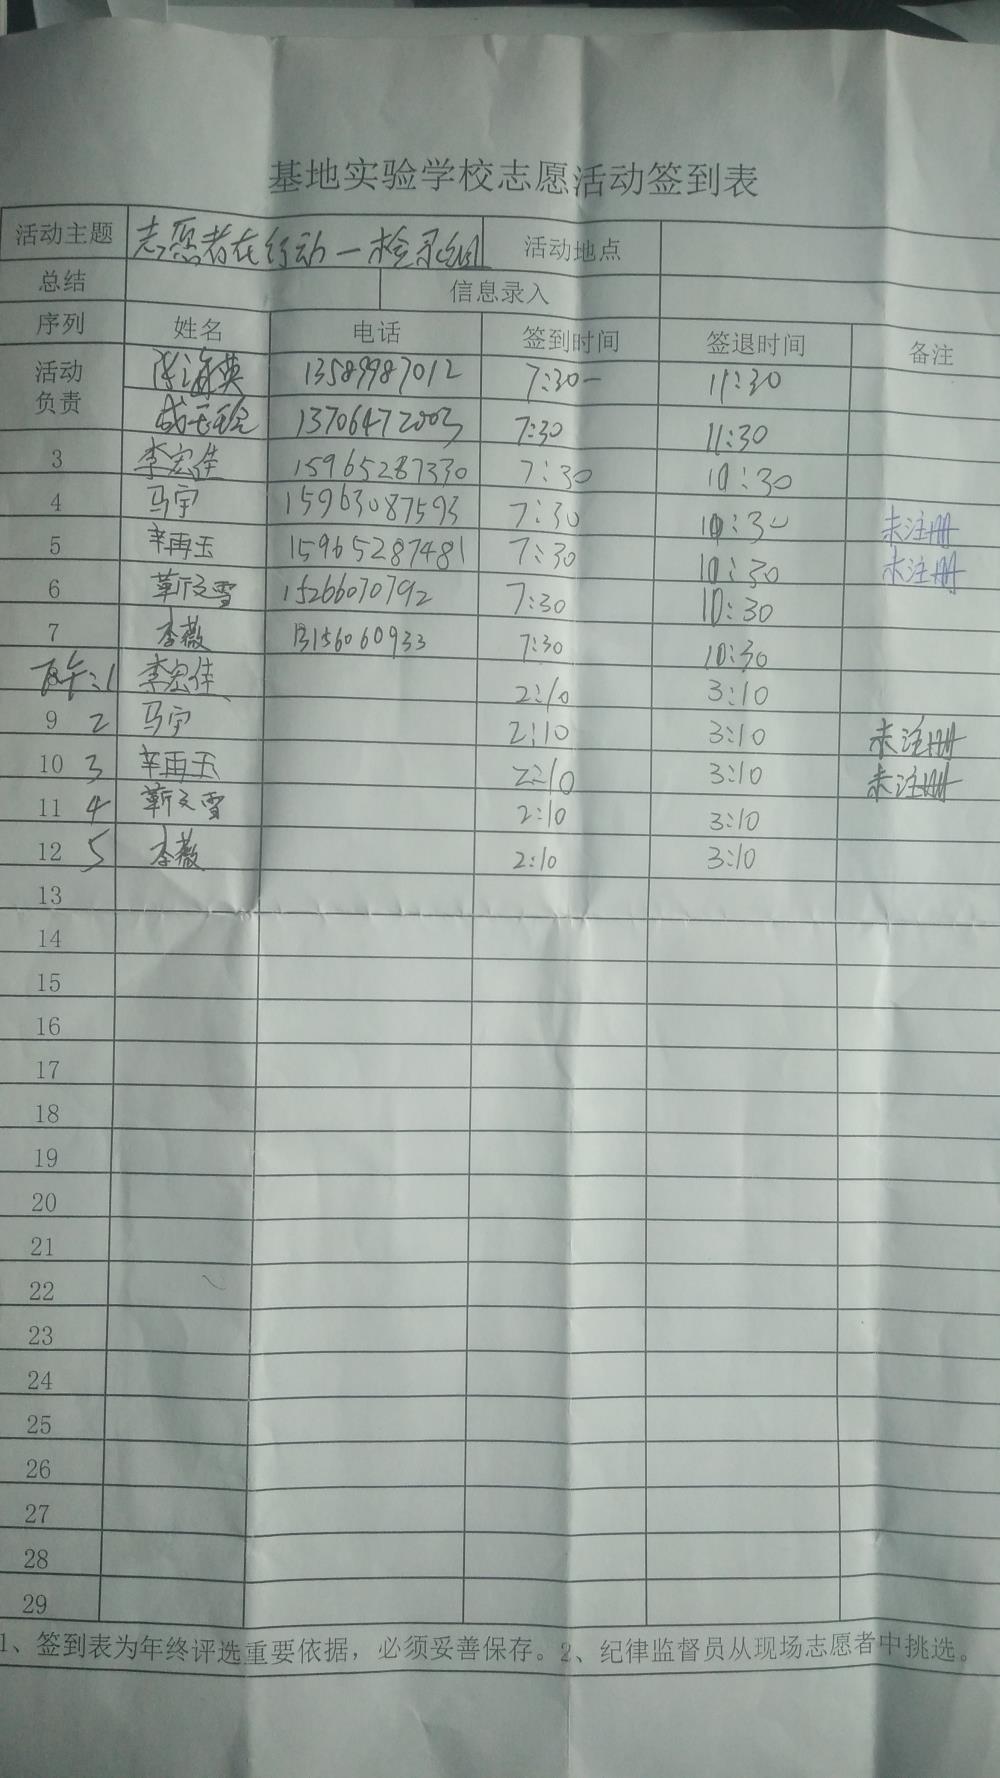 基地实验学校志愿活动签到表
活动主题 志愿者在行动一检录组 活动地点
总结 信息录入
序列 姓名 电话 签到时间 签退时间 备注
活动负责 张海英 13589987012 7:30- 11:30
13706472003 7:30 11:30
3 李宏佳 15965287330 7:30 10:30
4 马宇 15963087593 7:30 10:30 未注册
5 辛再玉 15965287481 7:30 10:30 未注册
6 靳文雪 15266070792 7:30 10:30
7 李薇 13156060933 7:30 10:30
下午:1 李宏佳 2:10 3:10
9 2 马宇 2:10 3:10 未注册
10 3 辛再玉 2:10 3:10 未注册
11 4 靳文雪 2:10 3:10
12 5 李薇 2:10 3:10
13
14
15
16
17
18
19
20
21
22
23
24
25
26
27
28
29
1、签到表为年终评选重要依据，必须妥善保存。2、纪律监督员从现场志愿者中挑选。